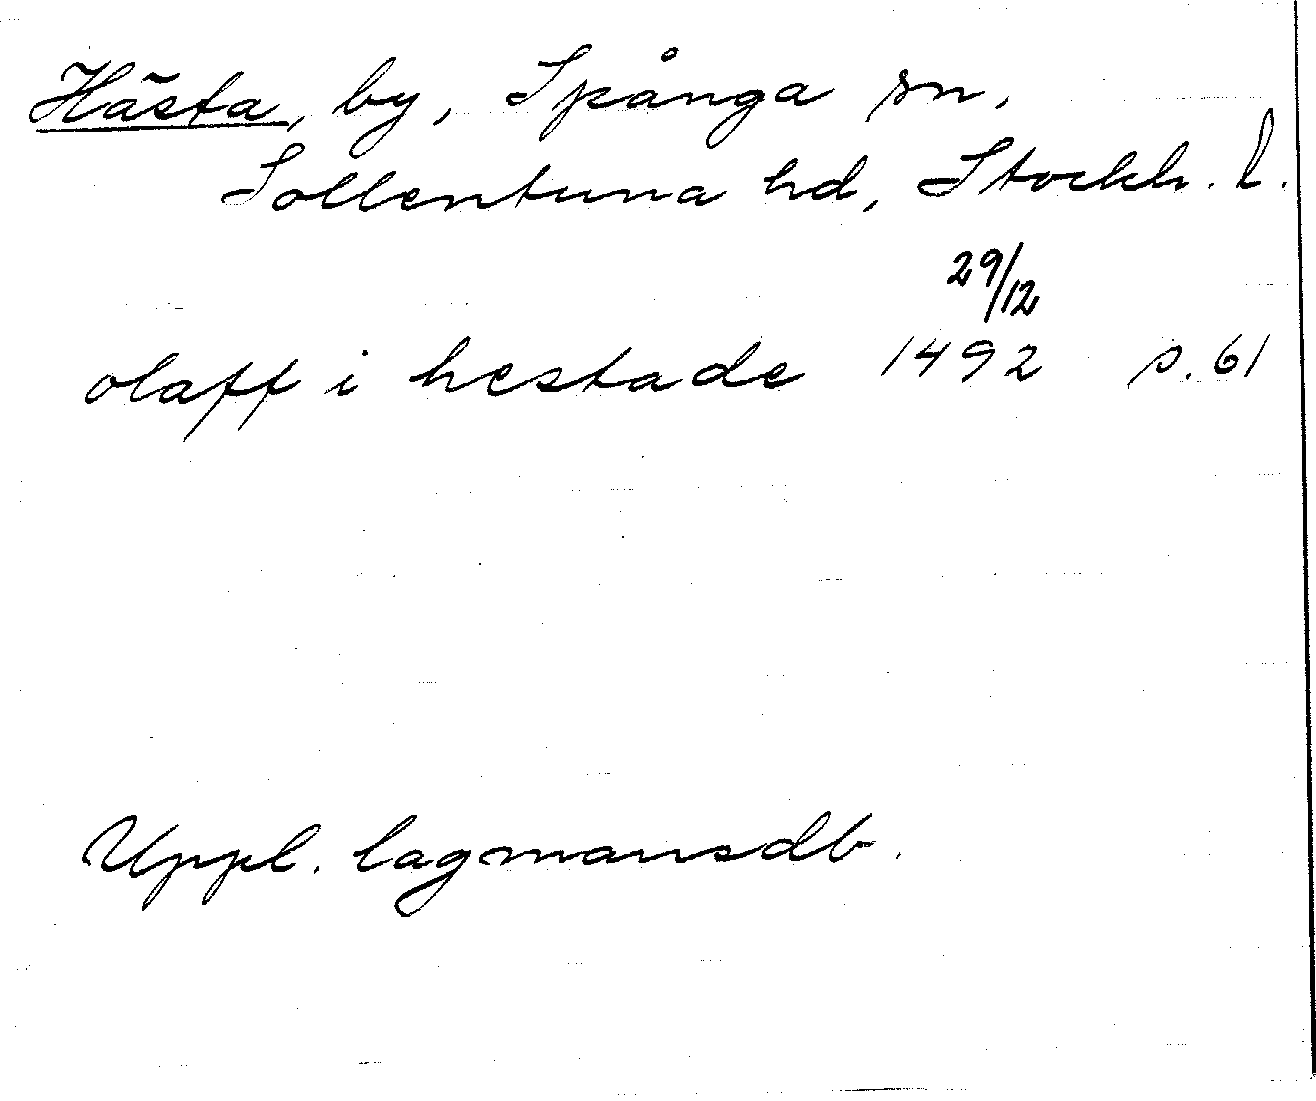 Hästa, by, Spånga sn,
Sollentuna hd, Stockh. l.
29/12
olaff i hestade 1492 s. 61
Uppl. lagmansdb.